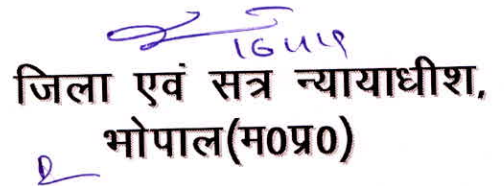 जिला एवं सत्र न्यायाधीश,
भोपाल(म0प्र0)